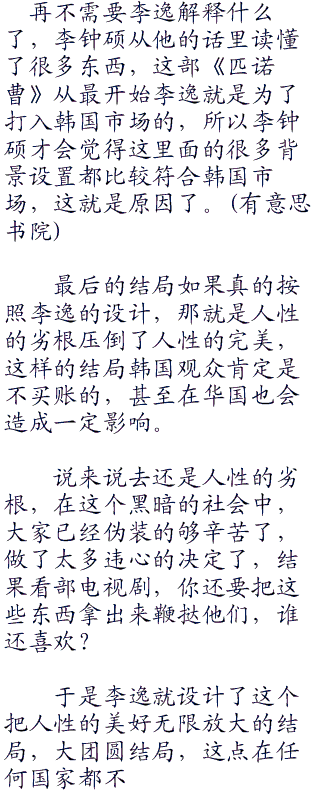 再不需要李逸解释什么
了，李钟硕从他的话里读懂
了很多东西，这部《匹诺
曹》从最开始李逸就是为了
打入韩国市场的，所以李钟
硕才会觉得这里面的很多背
景设置都比较符合韩国市
场，这就是原因了。(有意思
书院)
最后的结局如果真的按
照李逸的设计，那就是人性
的劣根压倒了人性的完美，
这样的结局韩国观众肯定是
不买账的，甚至在华国也会
造成一定影响。
说来说去还是人性的劣
根，在这个黑暗的社会中，
大家已经伪装的够辛苦了，
做了太多违心的决定了，结
果看部电视剧，你还要把这
些东西拿出来鞭挞他们，谁
还喜欢？
于是李逸就设计了这个
把人性的美好无限放大的结
局，大团圆结局，这点在任
何国家都不